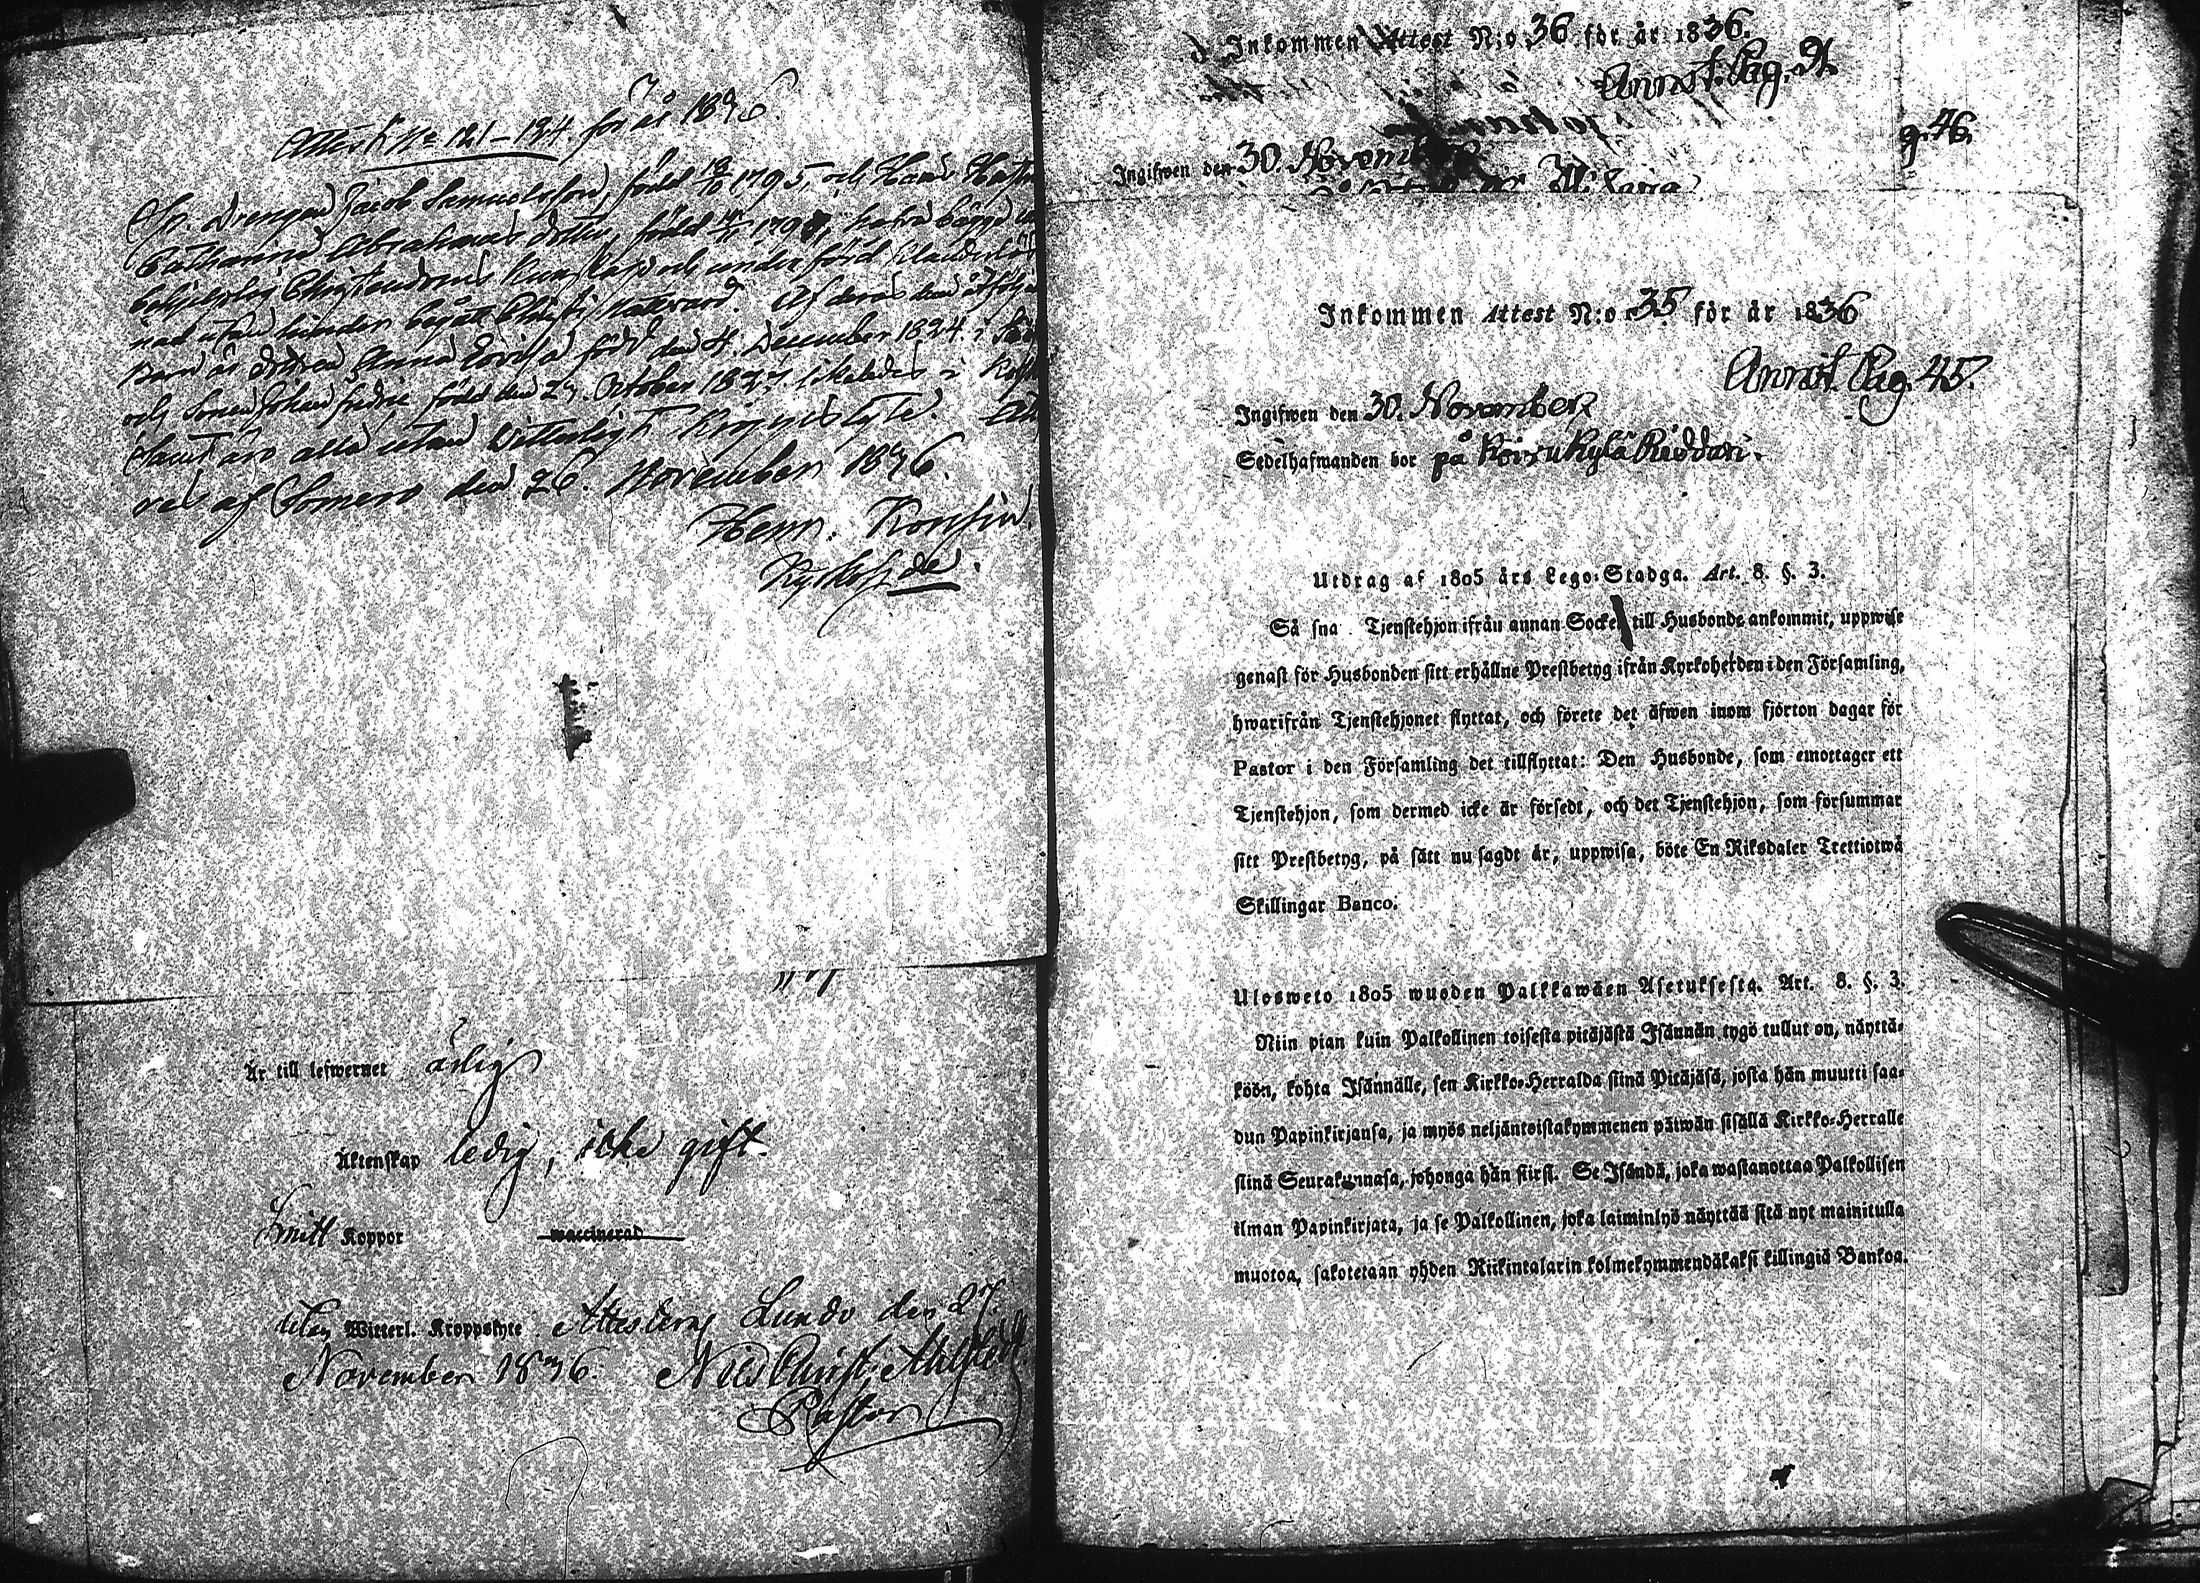 Attest No 121-124. för år 1836.
Fr. Drengen Jacob Samuelsson, född 18/10 1795, och Hans Hustru
Catharina Abrahams dotter, född 1798, hafva bägge
Christendoms Kunskap och under förd
nad utan hinder begått Christi Nattvard. Af deras
Barn är dottren Anna Lovisa född den 4. December 1824. i
och Sonen Johan Fredric född den 27. October 1827. likaledes i
samt äro alla utan Witterligt Kroppslyte.
af Somero den 26. November 1836.
Henr.
Är till lefwernet ärlig
Äktenskap ledig, icke gift.
Haft Koppor waccinerad
utan Witterl. Kroppslyte. Attesterar Lundo den 27.
November 1836. Nils Christ. Ahlstedt
Pastor
Inkommen Attest N:o 36 för år 1836.
Annot. Pag.
g. 46.
Ingifwen den 30. November
Inkommen Attest N:o 35 för år 1836
Annot. Pag. 45.
Ingifwen den 30. November
Sedelhafwanden bor på Koivukylä Riddari.
Utdrag af 1805 års Lego-Stadga. Art. 8. §. 3.
Så sna Tjenstehjon ifrån annan Socken till Husbonde ankommit, uppwise
genast för Husbonden sitt erhållne Prestbetyg ifrån Kyrkoherden i den Församling,
hwarifrån Tjenstehjonet flyttat, och förete det äfwen inom fjorton dagar för
Pastor i den Församling det tillflyttat: Den Husbonde, som emottager ett
Tjenstehjon, som dermed icke är försedt, och det Tjenstehjon, som försummar
sitt Prestbetyg, på sätt nu sagdt är, uppwisa, böte En Riksdaler Trettiotwå
Skillingar Banco.
Ulosweto 1805 wuoden Palkkawäen Asetuksesta. Art. 8. §. 3.
Niin pian kuin Palkollinen toisesta pitäjästä Isännän tygö tullut on, näyttä-
köön, kohta Isännälle, sen Kirkko-Herralda siinä Pitäjäsä, josta hän muutti saa-
dun Papinkirjansa, ja myös neljäntoistakymmenen päiwän sisällä Kirkko-Herralle
siinä Seurakunnasa, johonga hän siirsi. Se Isändä, joka wastanottaa Palkollisen
ilman Papinkirjata, ja se Palkollinen, joka laiminlyö näyttää sitä nyt mainitulla
muotoa, sakotetaan yhden Riikintalarin kolmekymmendäkaksi killingiä Bankoa.